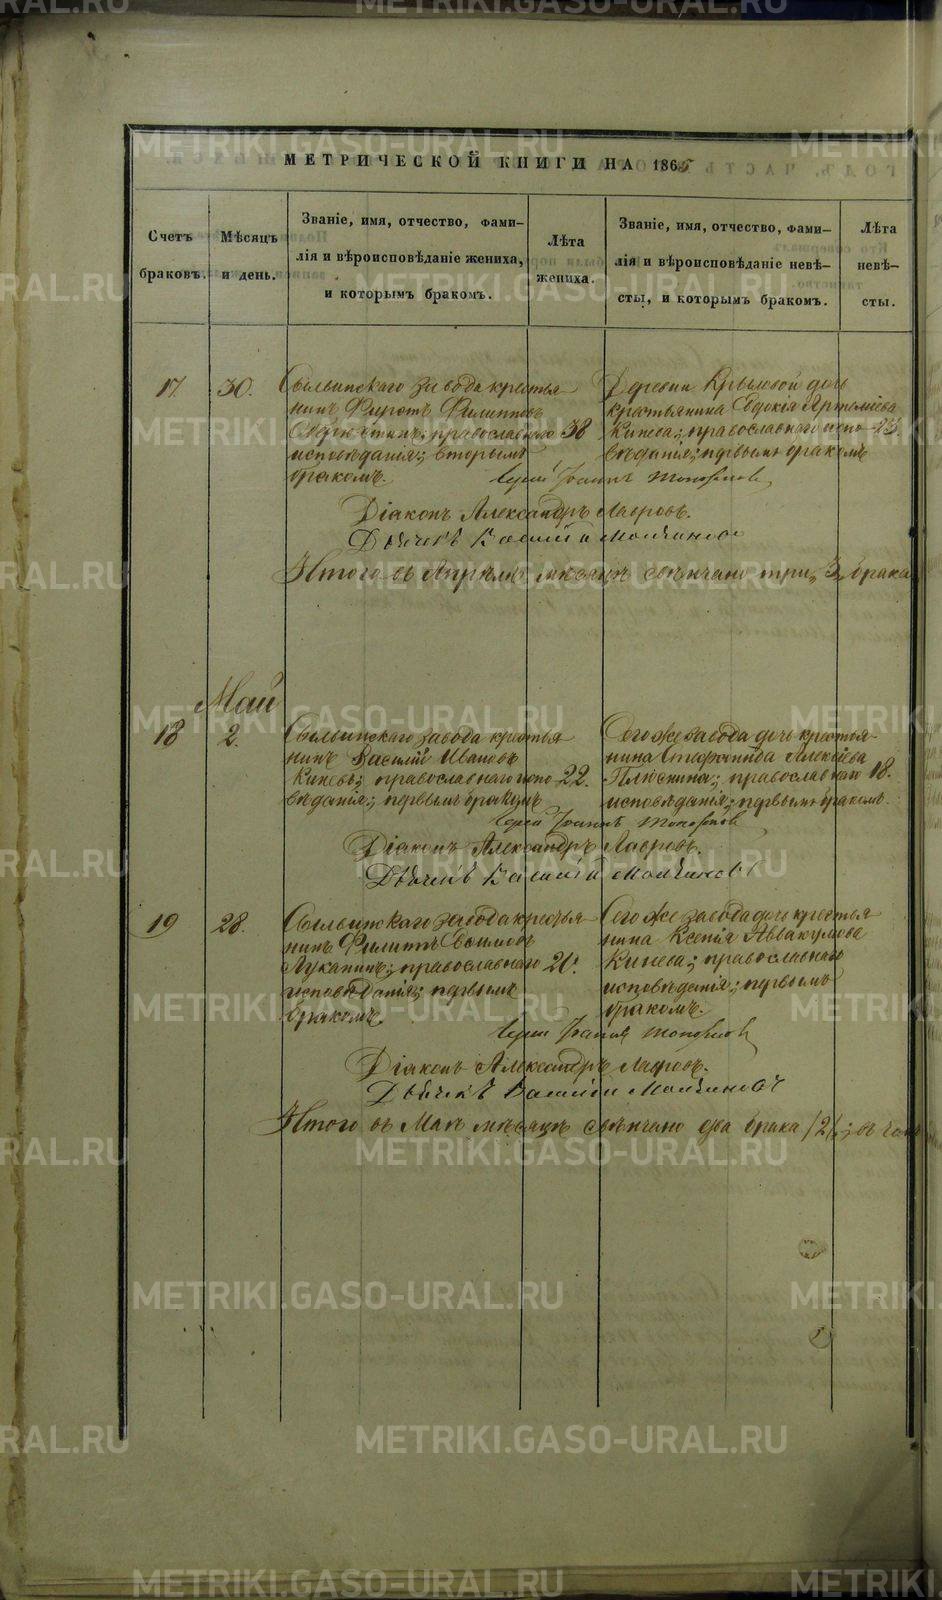 METRIKI.GASO-URAL.RU
МЕТРИЧЕСКОЙ КНИГИ НА 1865
Счетъ браковъ.
Мѣсяцъ и день.
Званіе, имя, отчество, фами-
лія и вѣроисповѣданіе жениха,
и которымъ бракомъ.
Лѣта жениха.
Званіе, имя, отчество, фами-
лія и вѣроисповѣданіе невѣ-
сты, и которымъ бракомъ.
Лѣта невѣ-
сты.
17.
30.
Сылвинскаго завода крестья
нинъ Филиппов
православнаго
исповѣданія; вторымъ
бракомъ.
38
Деревни Крыловой дочь
крестьянина Евдокія Артеміева
Кинева; православнаго испо-
вѣданія; первымъ бракомъ
23.
Іоаннъ
Діаконъ Александръ Лавровъ.
Дьячекъ Василій
Итого въ Апрѣлѣ мѣсяцѣ свѣнчано три, 3, брака
Май
18
2.
Сылвинскаго завода крестья
нинъ Василий Ивановъ
Киневъ; православнаго испо-
вѣданія; первымъ бракомъ
22.
Сего же завода дочь крестья-
нина Стефанида Алексіева
Плюснина; православнаго
исповѣданія; первымъ бракомъ.
18.
Іоаннъ
Діаконъ Александръ Лавровъ.
Дьячекъ Василій
19
28.
Сылвинскаго завода крестья
нинъ Филиппъ
Луканинъ; православнаго
исповѣданія; первымъ
бракомъ.
20.
Сего же завода дочь крестья
нина Ксенія Аввакумова
Кинева; православнаго
исповѣданія; первымъ
бракомъ.
Іоаннъ
Діаконъ Александръ Лавровъ.
Дьячекъ Василій
Итого въ Маѣ мѣсяцѣ свѣнчано два брака /2/;